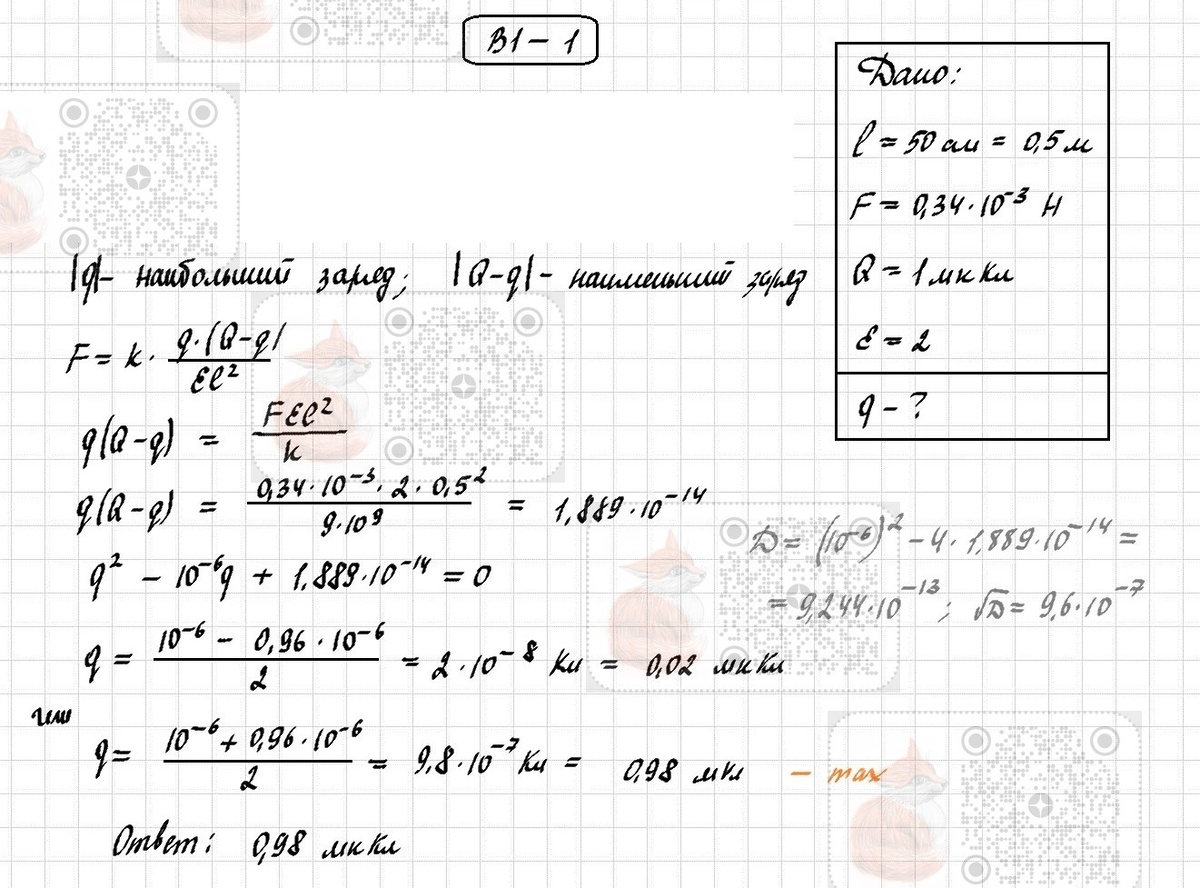 В1 – 1
Дано:
l = 50 см = 0,5 м
F = 0,34·10⁻³ Н
Q = 1 мк Кл
ε = 2
q – ?
|q| – наибольший заряд; |Q–q| – наименьший заряд
F = k · q·(Q–q) / εl²
q(Q–q) = Fεl² / k
q(Q–q) = 0,34·10⁻³ · 2 · 0,5² / 9·10⁹ = 1,889·10⁻¹⁴
D = (10⁻⁶)² – 4 · 1,889·10⁻¹⁴ =
q² – 10⁻⁶q + 1,889·10⁻¹⁴ = 0
= 9,244·10⁻¹³; √D = 9,6·10⁻⁷
q = 10⁻⁶ – 0,96 · 10⁻⁶ / 2 = 2·10⁻⁸ Кл = 0,02 мк Кл
или
q = 10⁻⁶ + 0,96·10⁻⁶ / 2 = 9,8·10⁻⁷ Кл = 0,98 мкл – max
Ответ: 0,98 мк Кл